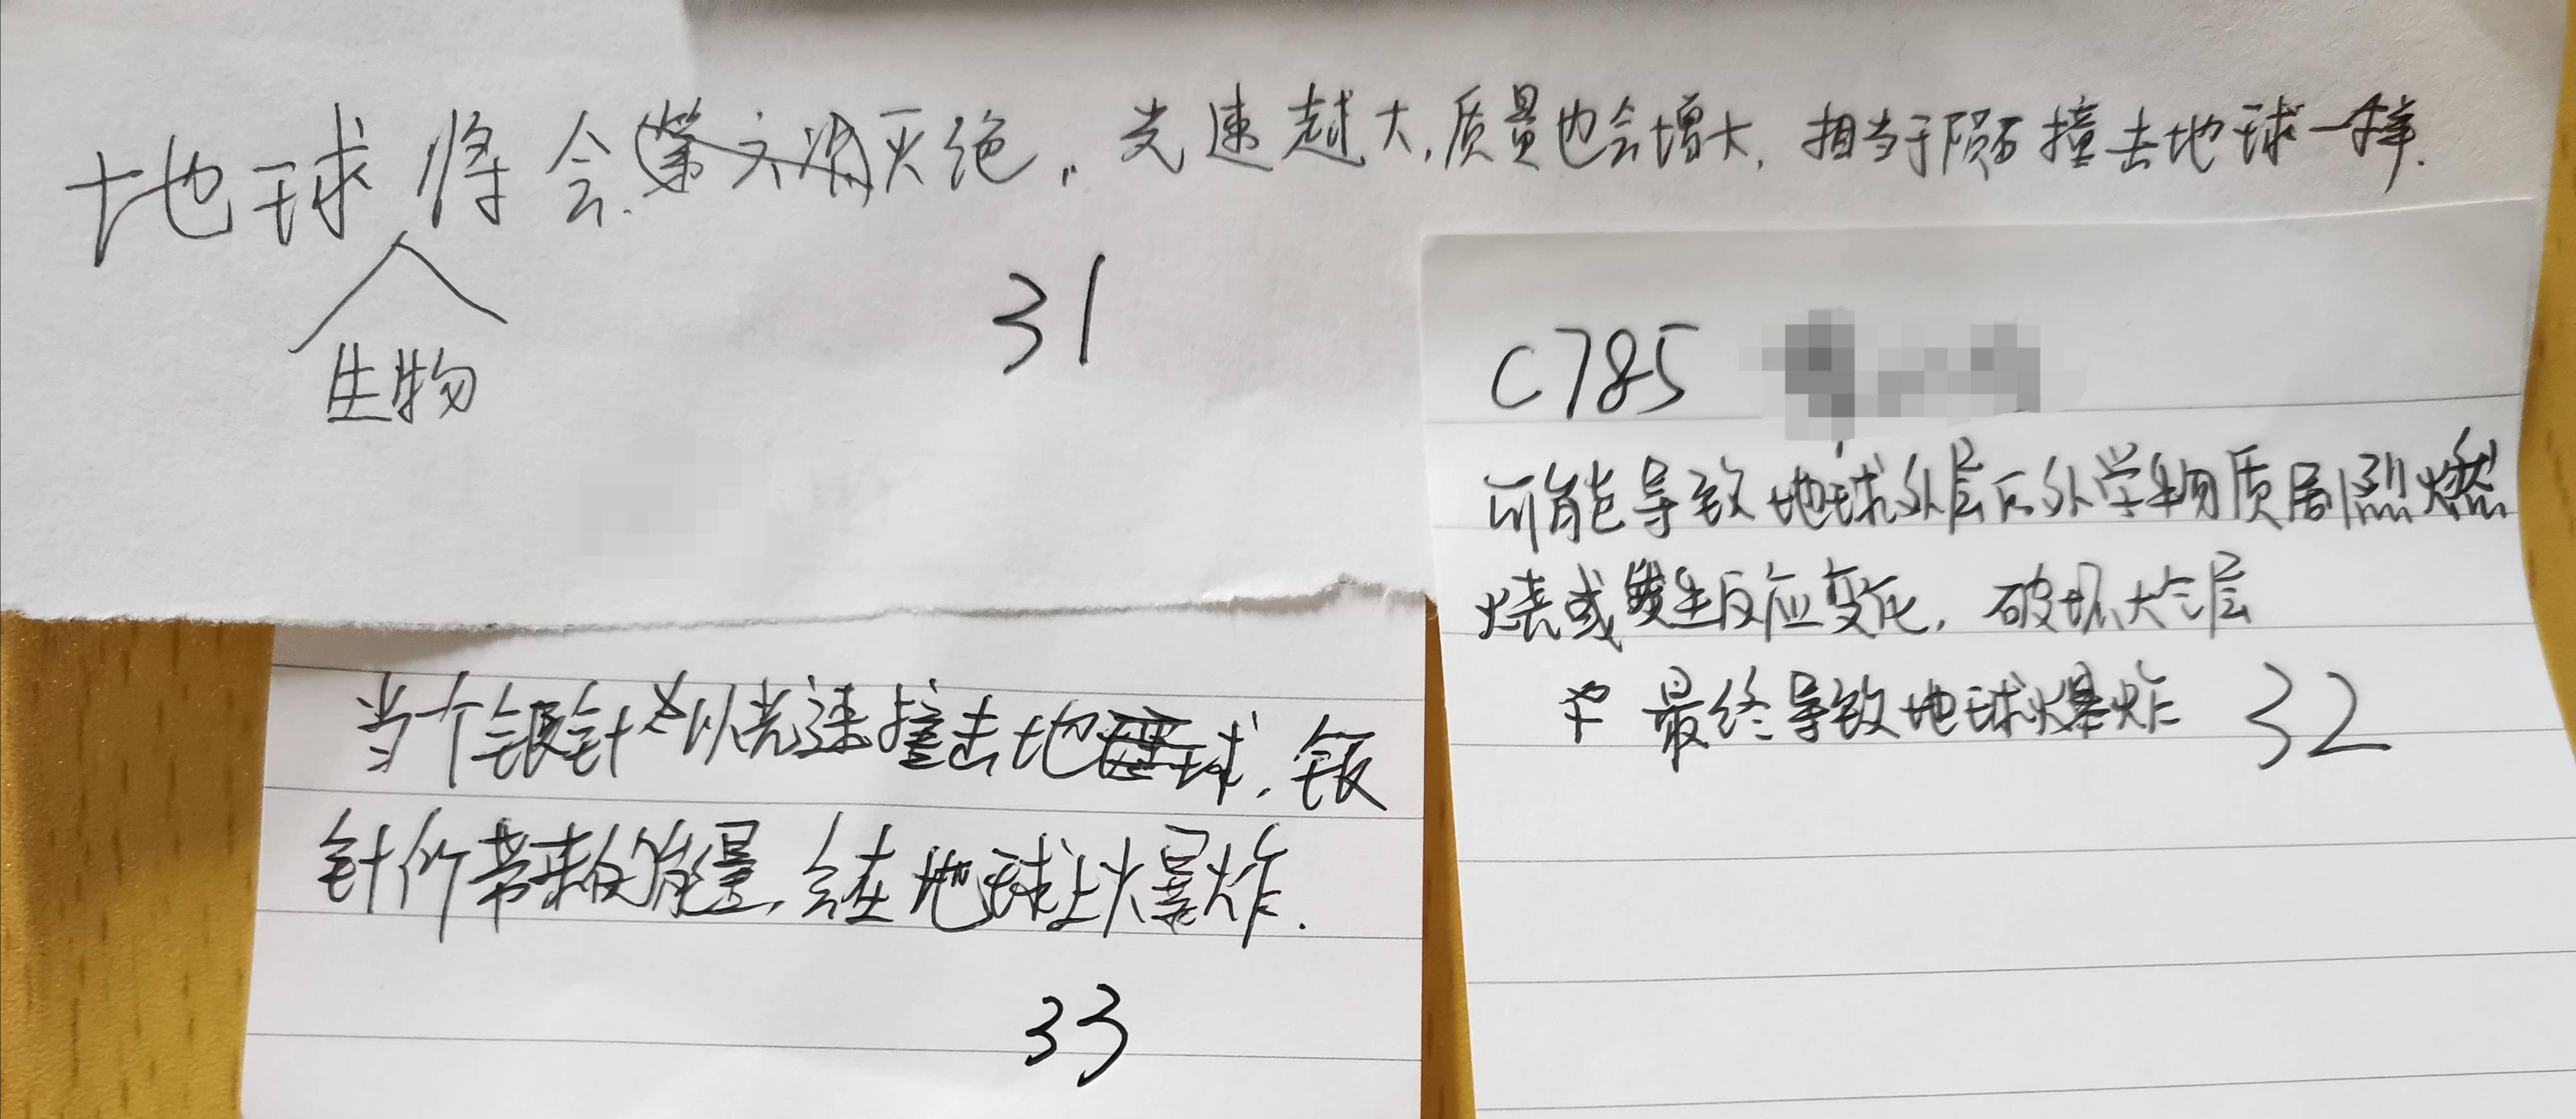 地球将会灭绝。光速越大，质量也会增大，相当于陨石撞击地球一样.
生物
31
C785
可能导致地球外层的外学物质剧烈燃
烧或发生反应变化，破坏大气层
最终导致地球爆炸 32
当个银针以光速撞击地球，银
针所带来的能量，会在地球上爆炸.
33